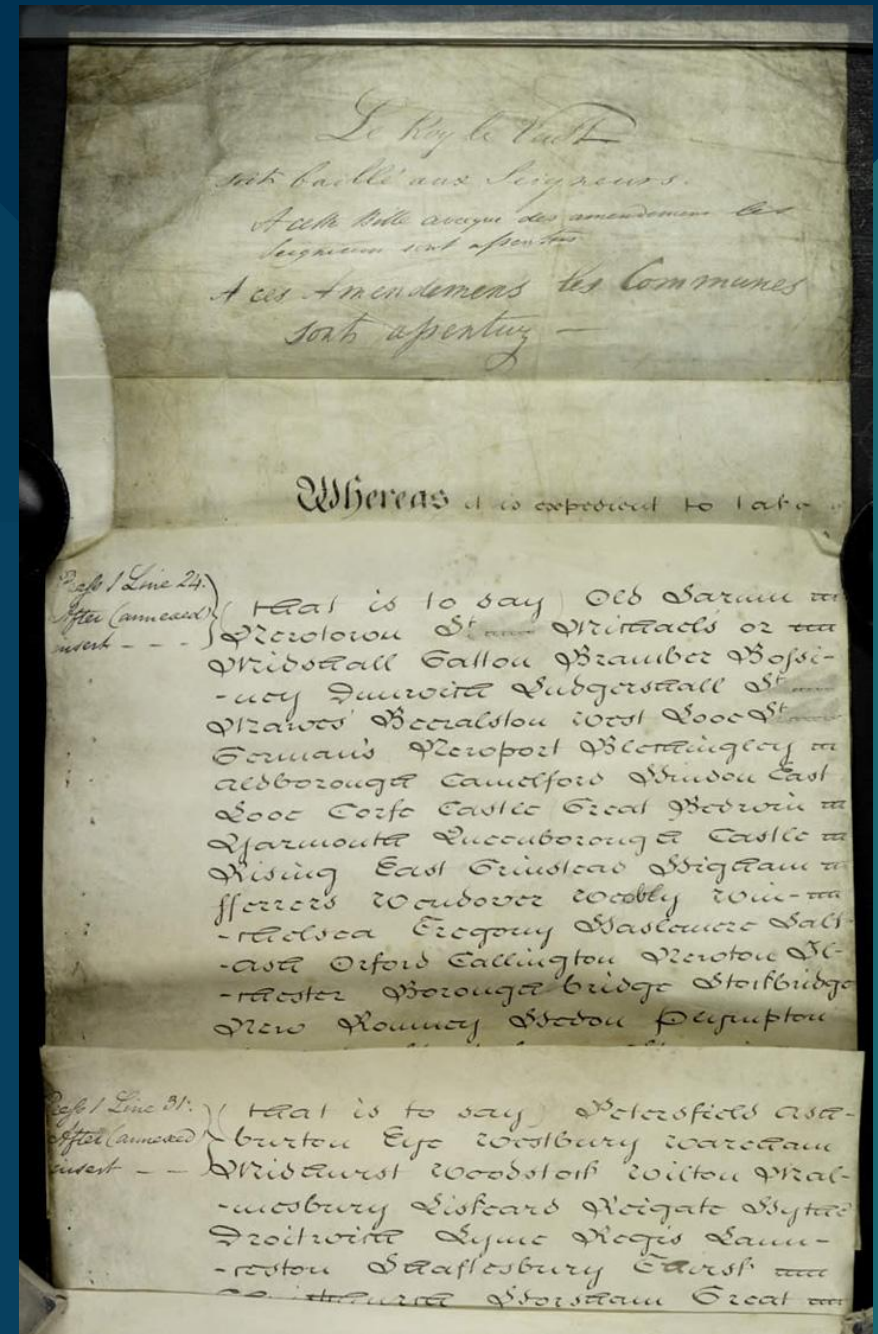 Le Roy le Veult
soit baillé aux Seigneurs.
A cette Bille avecque des amendemens les
Seigneurs sont assentus
A ces Amendemens les Communes
sont assentuz —
Whereas it is expedient to take
Press 1 Line 24.
After (annexed)
insert - - -
(that is to say) Old Sarum
Newtown St. Michael's or
Midshall Gatton Bramber Bossi-
-ney Dunwich Ludgershall St.
Mawes' Beeralston West Looe St.
German's Newport Blechingley
Aldborough Camelford Hindon East
Looe Corfe Castle Great Bedwin
Yarmouth Queenborough Castle
Rising East Grinstead Higham
fferrers Wendover Weobly Win-
-chelsea Tregony Haslemere Salt-
-ash Orford Callington Newton Il-
-chester Boroughbridge Stockbridge
New Romney Hedon Plympton
Press 1 Line 31.
After (annexed)
insert - - -
(that is to say) Petersfield Ash-
-burton Eye Westbury Wareham
Midhurst Woodstock Wilton Mal-
-mesbury Liskeard Reigate Hythe
Droitwich Lyme Regis Laun-
-ceston Shaftesbury Thirsk
Christchurch Horsham Great